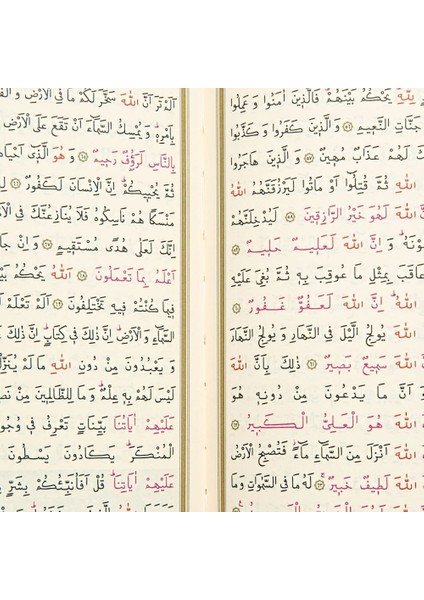 لِلّٰهِ يَحْكُمُ بَيْنَهُمْ فَالَّذٖينَ اٰمَنُوا وَعَمِلُوا
جَنَّاتِ النَّعٖيمِ ﴿٥٦﴾ وَالَّذٖينَ كَفَرُوا وَكَذَّبُوا
لَهُمْ عَذَابٌ مُهٖينٌ ﴿٥٧﴾ وَالَّذٖينَ هَاجَرُوا
اللّٰهِ ثُمَّ قُتِلُٓوا اَوْ مَاتُوا لَيَرْزُقَنَّهُمُ اللّٰهُ
اللّٰهَ لَهُوَ خَيْرُ الرَّازِقٖينَ ﴿٥٨﴾ لَيُدْخِلَنَّهُمْ
وَاِنَّ اللّٰهَ لَعَلٖيمٌ حَلٖيمٌ ﴿٥٩﴾
عَاقَبَ بِمِثْلِ مَا عُوقِبَ بِهٖ ثُمَّ بُغِيَ عَلَيْهِ
اللّٰهُ اِنَّ اللّٰهَ لَعَفُوٌّ غَفُورٌ ﴿٦٠﴾
اللّٰهَ يُولِجُ الَّيْلَ فِي النَّهَارِ وَيُولِجُ النَّهَارَ
اللّٰهَ سَمٖيعٌ بَصٖيرٌ ﴿٦١﴾ ذٰلِكَ بِاَنَّ اللّٰهَ
وَاَنَّ مَا يَدْعُونَ مِنْ دُونِهٖ هُوَ
اللّٰهَ هُوَ الْعَلِيُّ الْكَبٖيرُ ﴿٦٢﴾
اللّٰهَ اَنْزَلَ مِنَ السَّمَٓاءِ مَٓاءً فَتُصْبِحُ الْاَرْضُ
اللّٰهَ لَطٖيفٌ خَبٖيرٌ ﴿٦٣﴾ لَهُ مَا فِي السَّمٰوَاتِ وَمَا
اَلَمْ تَرَ اَنَّ اللّٰهَ سَخَّرَ لَكُمْ مَا فِي الْاَرْضِ
بِاَمْرِهٖ وَيُمْسِكُ السَّمَٓاءَ اَنْ تَقَعَ عَلَى الْاَرْضِ
بِالنَّاسِ لَرَؤُفٌ رَحٖيمٌ ﴿٦٥﴾ وَهُوَ الَّذٖٓي اَحْيَا
ثُمَّ يُحْيٖيكُمْ اِنَّ الْاِنْسَانَ لَكَفُورٌ ﴿٦٦﴾
مَنْسَكًا هُمْ نَاسِكُوهُ فَلَا يُنَازِعُنَّكَ فِي الْاَمْرِ
اِنَّكَ لَعَلٰى هُدًى مُسْتَقٖيمٍ ﴿٦٧﴾ وَاِنْ جَا
اَعْلَمُ بِمَا تَعْمَلُونَ ﴿٦٨﴾ اَللّٰهُ يَحْكُمُ
فٖيمَا كُنْتُمْ فٖيهِ تَخْتَلِفُونَ ﴿٦٩﴾ اَلَمْ تَعْلَمْ
السَّمَٓاءِ وَالْاَرْضِ اِنَّ ذٰلِكَ فٖي كِتَابٍ اِنَّ ذٰلِكَ
وَيَعْبُدُونَ مِنْ دُونِ اللّٰهِ مَا لَمْ يُنَزِّلْ
لَيْسَ لَهُمْ بِهٖ عِلْمٌ وَمَا لِلظَّالِمٖينَ مِنْ
عَلَيْهِمْ اٰيَاتُنَا بَيِّنَاتٍ تَعْرِفُ فٖي وُجُو
الْمُنْكَرَ يَكَادُونَ يَسْطُونَ
عَلَيْهِمْ اٰيَاتِنَا قُلْ اَفَاُنَبِّئُكُمْ بِشَرٍّ